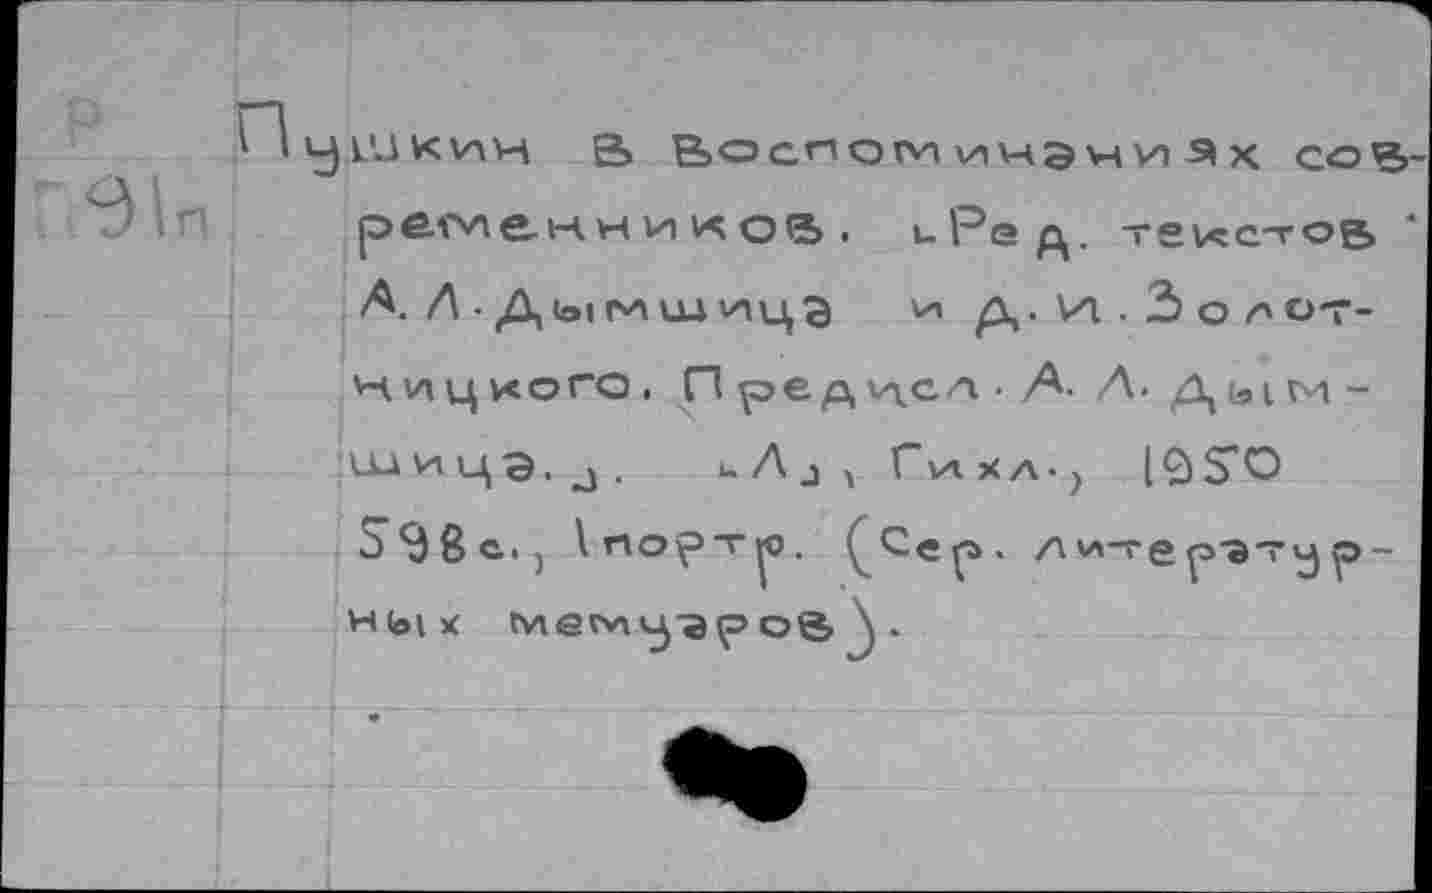 Р
П91п
Пушкин в воспоминаниях сов-
ременников. [Ред. текстов
А. Л. Дымшица и Д. И. Золот-
ницкого. Предисл. А. Л. Дым-
шица.]. [Л], Гихл., 1950
598 с., 1 портр. (Сер. литератур-
ных мемуаров).